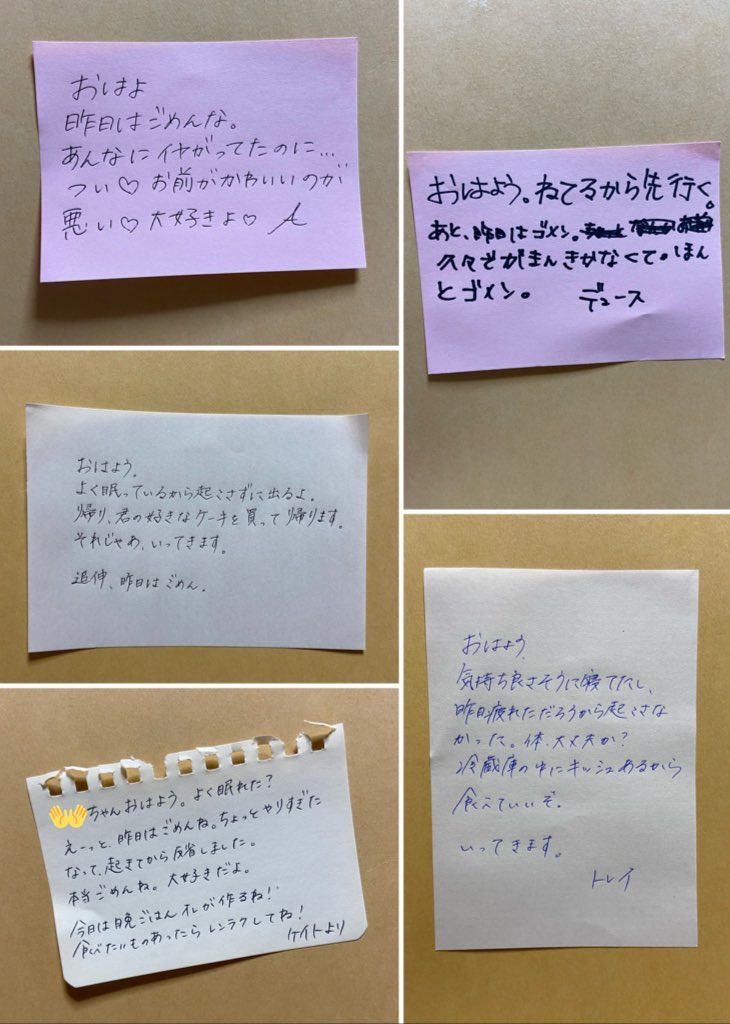 おはよ
昨日はごめんな。
あんなにイヤがってたのに…
つい♡ お前がかわいいのが
悪い♡ 大好きよ♡ A
おはよう。ねてるから先行く。
あと、昨日はゴメン。
久々でがまんきかなくて。ほん
とゴメン。 デュース
おはよう。
よく眠っているから起こさずに出るよ。
帰り、君の好きなケーキを買って帰ります。
それじゃあ、いってきます。
追伸、昨日はごめん。
おはよう
気持ち良さそうに寝てたし、
昨日疲れただろうから起こさな
かった。体、大丈夫か?
冷蔵庫の中にキッシュあるから
食べていいぞ。
いってきます。
トレイ
👐ちゃんおはよう。よく眠れた?
えーっと、昨日はごめんね。ちょっとやりすぎた
なって、起きてから反省しました。
本当ごめんね。大好きだよ。
今日は晩ごはんオレが作るね!
食べたいものあったらレンラクしてね!
ケイトより